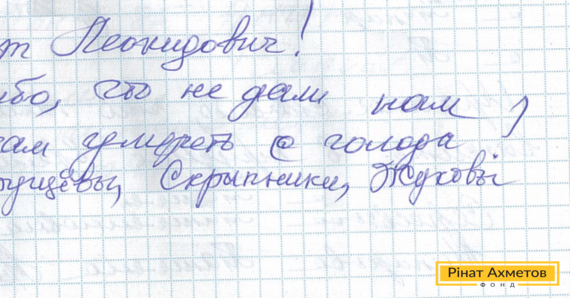 т Леонидович!
ибо, что не дали нам,
ам умереть с голода
ущёвы, Скрыпники, Жуковы
Рінат Ахметов
ФОНД